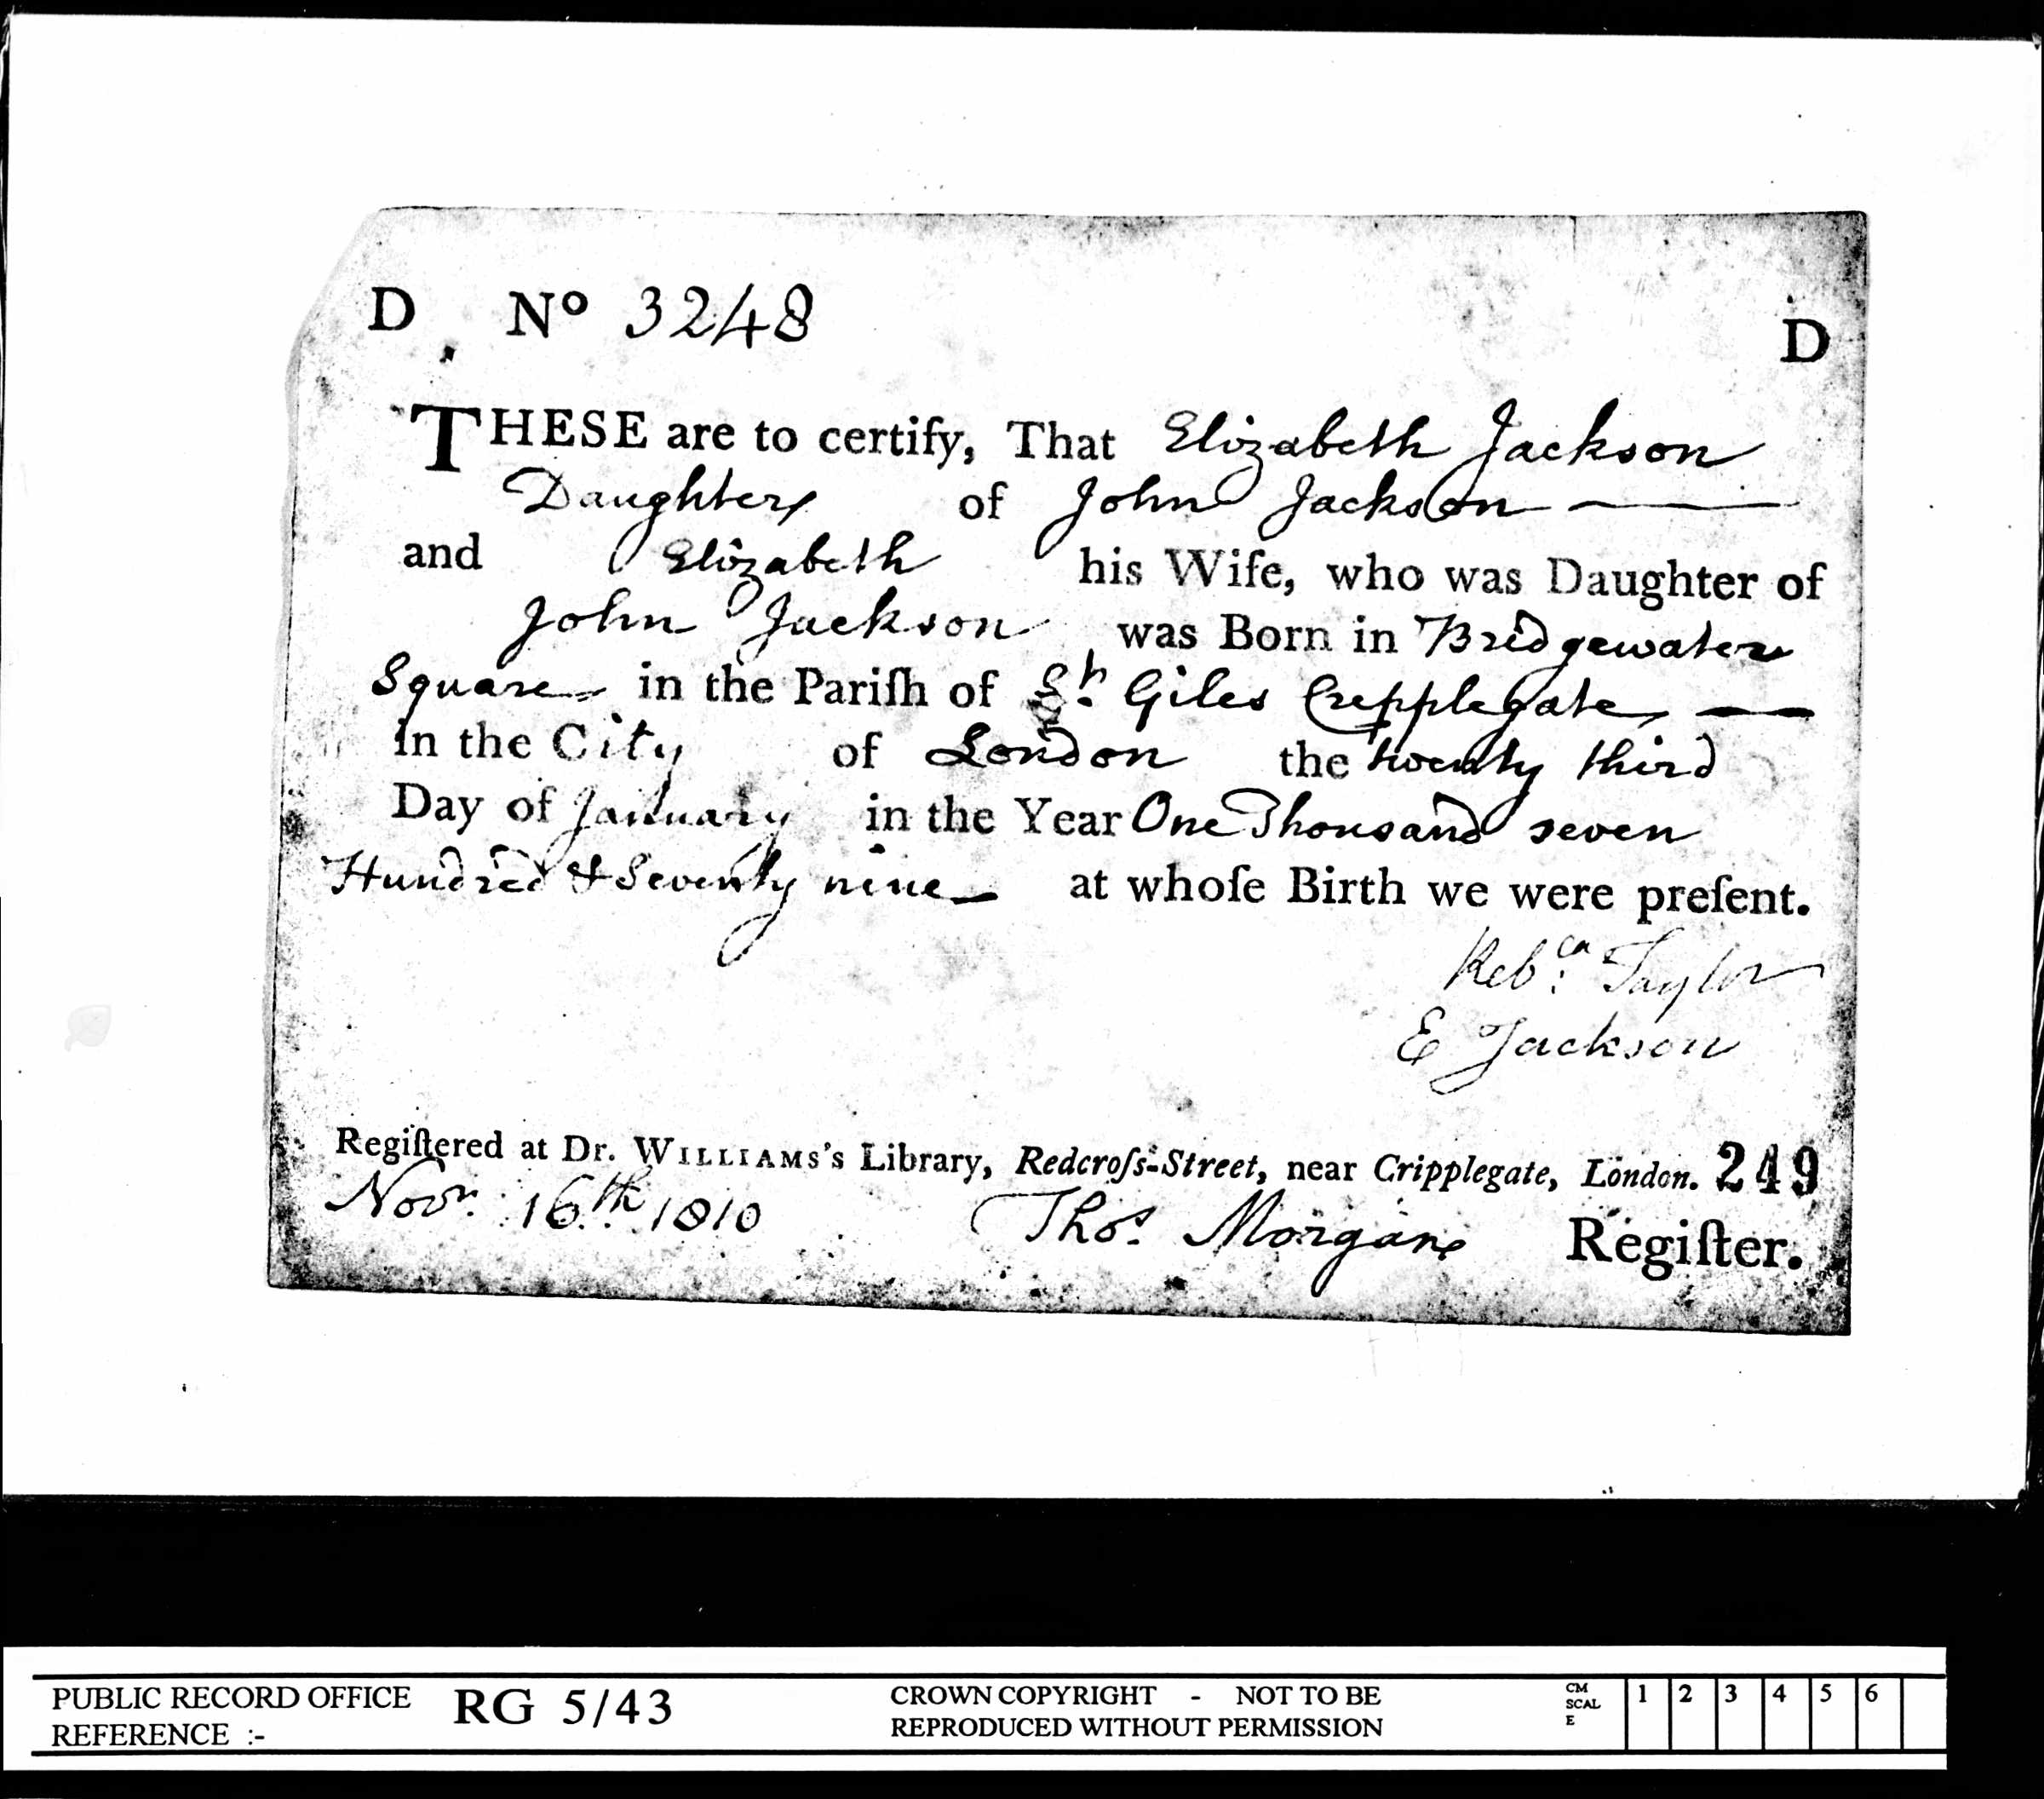 D Nº 3248 D
THESE are to certify, That Elizabeth Jackson
Daughter of John Jackson —
and Elizabeth his Wife, who was Daughter of
John Jackson was Born in Bridgewater
Square in the Pariſh of St. Giles Crepplegate —
in the City of London the twenty third
Day of January in the Year One Thousand seven
Hundred & Seventy nine — at whoſe Birth we were preſent.
Reb.ca Taylor
E Jackson
Regiſtered at Dr. WILLIAMS's Library, Redcroſs-Street, near Cripplegate, London. 249
Novr. 16.th 1810 Thos. Morgan Regiſter.
PUBLIC RECORD OFFICE RG 5/43 CROWN COPYRIGHT - NOT TO BE CM 1 2 3 4 5 6
REFERENCE :- REPRODUCED WITHOUT PERMISSION SCAL
E